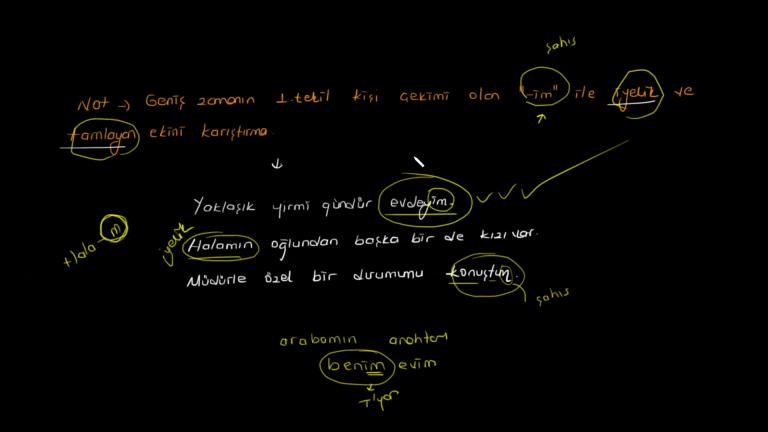 şahıs
Not → Geniş zamanın 1.tekil kişi çekimi olan "-im" ile iyelik ve
tamlayan ekini karıştırma.
Yaklaşık yirmi gündür evdeyim.
iyelik
Halamın oğlundan başka bir de kızı var.
Hala m
Müdürle özel bir durumumu konuştum.
şahıs
arabamın anahtarı
benim evim
T'yor